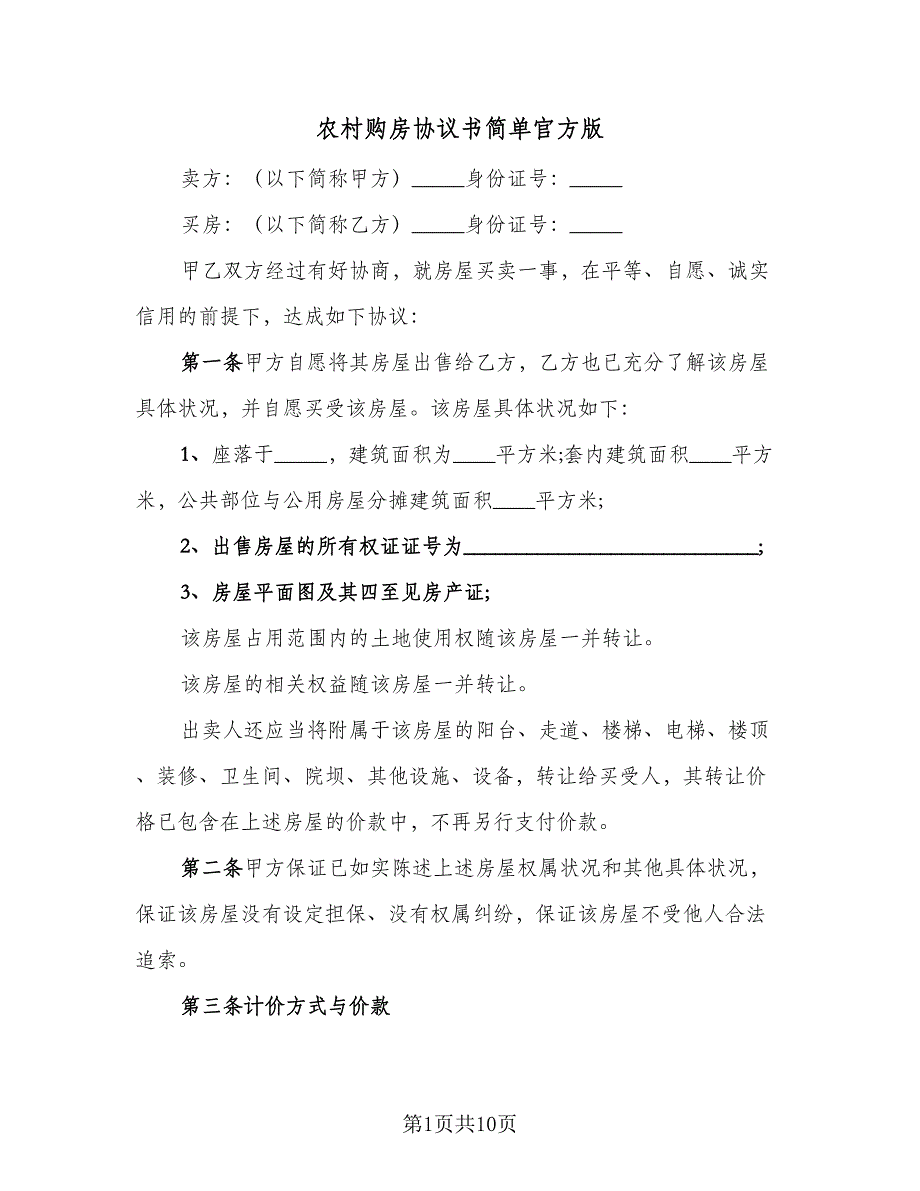 农村购房协议书简单官方版
卖方：（以下简称甲方）_____身份证号：_____
买房：（以下简称乙方）_____身份证号：_____
甲乙双方经过有好协商，就房屋买卖一事，在平等、自愿、诚实
信用的前提下，达成如下协议：
第一条甲方自愿将其房屋出售给乙方，乙方也已充分了解该房屋
具体状况，并自愿买受该房屋。该房屋具体状况如下：
1、座落于_____，建筑面积为____平方米;套内建筑面积____平方
米，公共部位与公用房屋分摊建筑面积____平方米;
2、出售房屋的所有权证证号为____________________________;
3、房屋平面图及其四至见房产证;
该房屋占用范围内的土地使用权随该房屋一并转让。
该房屋的相关权益随该房屋一并转让。
出卖人还应当将附属于该房屋的阳台、走道、楼梯、电梯、楼顶
、装修、卫生间、院坝、其他设施、设备，转让给买受人，其转让价
格已包含在上述房屋的价款中，不再另行支付价款。
第二条甲方保证已如实陈述上述房屋权属状况和其他具体状况，
保证该房屋没有设定担保、没有权属纠纷，保证该房屋不受他人合法
追索。
第三条计价方式与价款
第1页共10页